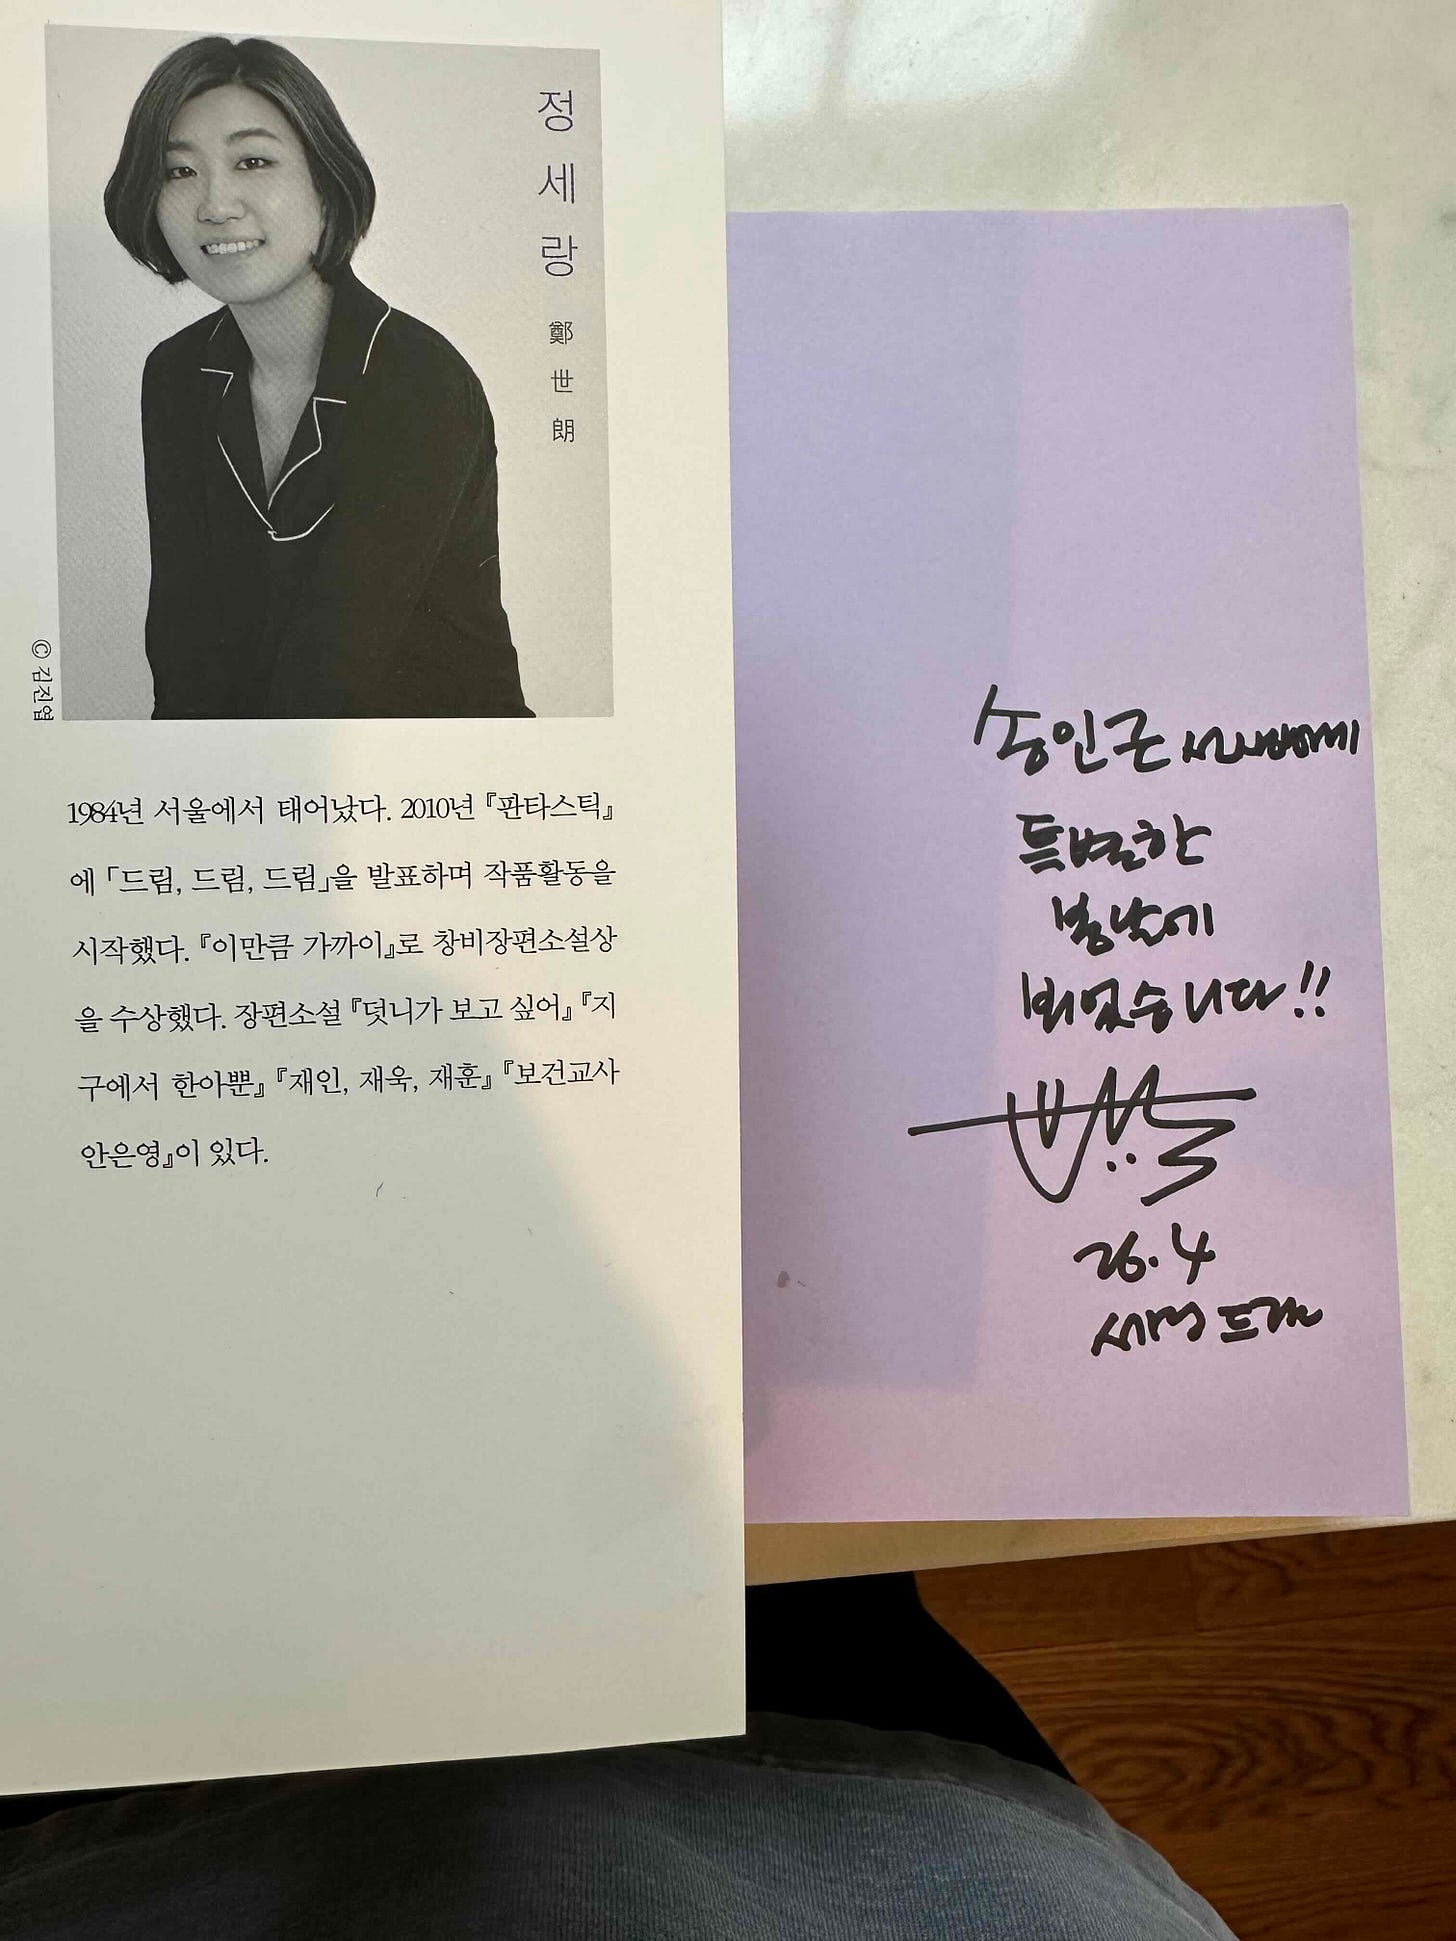 정세랑
鄭世朗
© 김진엽
1984년 서울에서 태어났다. 2010년 『판타스틱』
에 「드림, 드림, 드림」을 발표하며 작품활동을
시작했다. 『이만큼 가까이』로 창비장편소설상
을 수상했다. 장편소설 『덧니가 보고 싶어』 『지
구에서 한아뿐』 『재인, 재욱, 재훈』 『보건교사
안은영』이 있다.
송인근 선생님께
특별한
봄날에
뵈었습니다!!
26.4
세랑 드림